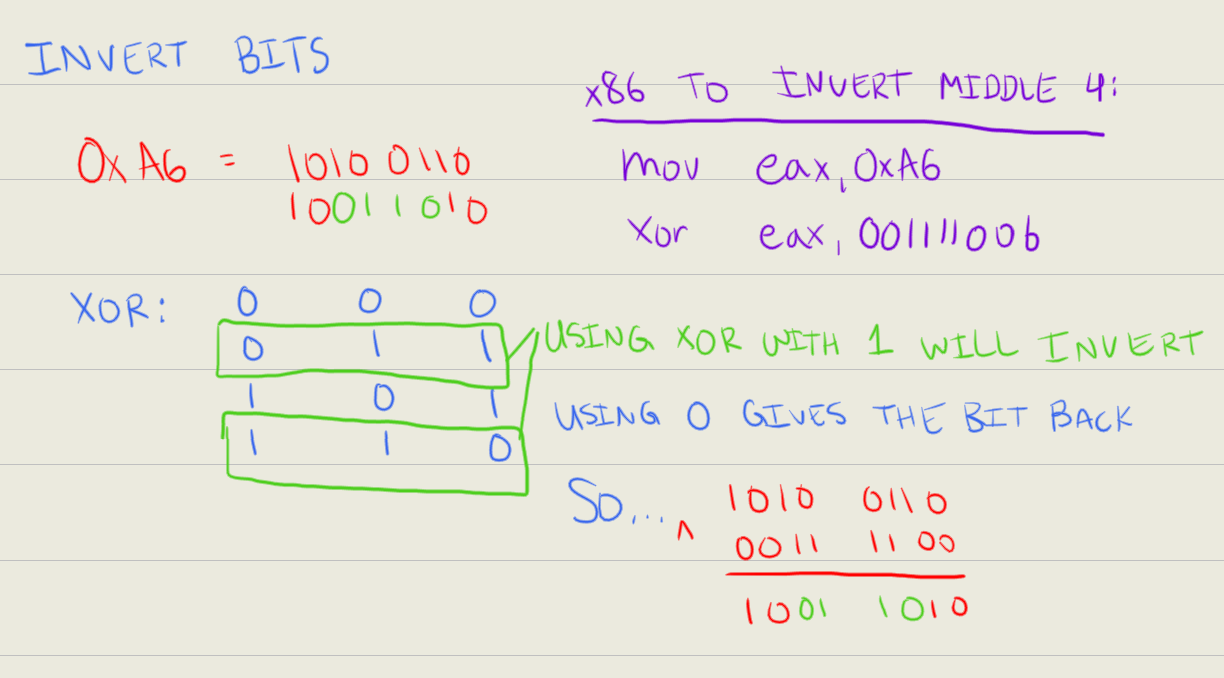 INVERT BITS
0xA6 = 1010 0110
10011010
x86 TO INVERT MIDDLE 4:
mov eax, 0xA6
xor eax, 00111100b
XOR: 0 0 0
0 1 1
1 0 1
1 1 0
USING XOR WITH 1 WILL INVERT
USING 0 GIVES THE BIT BACK
SO... ^ 1010 0110
0011 1100
1001 1010